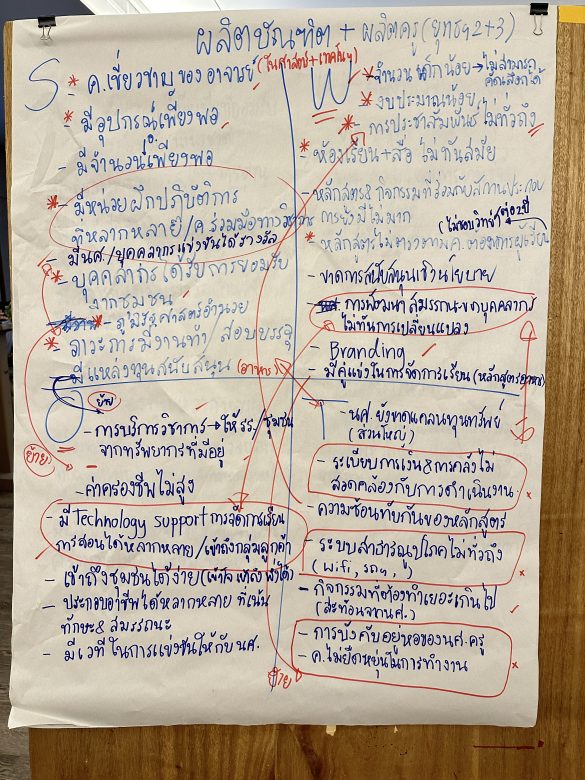 ผลิตบัณฑิต + ผลิตครู (ยุทธฯ2+3)
S
* - ค.เชี่ยวชาญของอาจารย์ (ในศาสตร์+เทคโนฯ)
* - มีอุปกรณ์เพียงพอ
- มีจำนวนเพียงพอ
* - มีหน่วยฝึกปฏิบัติการ
ที่หลากหลาย/ค.ร่วมมือทางวิชาการ
- มีนศ./บุคคลากรแข่งขันได้รางวัล
* - บุคลากรได้รับการยอมรับ
จากชุมชน
* - ภูมิรัฐศาสตร์อำนวย
* - ภาวะการมีงานทำ/สอบบรรจุ
- มีแหล่งทุนสนับสนุน (อาหาร)
W
* - จำนวนเด็กน้อย → ไม่สามารถ
คัดเลือกได้
* - งบประมาณน้อย
* - การประชาสัมพันธ์ไม่ทั่วถึง
* - ห้องเรียน+สื่อ ไม่ทันสมัย
- หลักสูตร& กิจกรรมที่ร่วมกับสถานประกอบ
การยังมีไม่มาก
(ไม่ชอบวิทย์) ต่อ 2 ปี
* - หลักสูตรไม่ตรงตามค.ต้องการผู้เรียน
- ขาดการสนับสนุนเชิงนโยบาย
- การพัฒนาสมรรถนะของบุคคลากร
ไม่ทันการเปลี่ยนแปลง
- Branding
- มีคู่แข่งในการจัดการเรียน (หลักสูตรอาหาร)
O
ย้าย
- การบริการวิชาการ → ให้รร./ชุมชน
จากทรัพยากรที่มีอยู่
ย้าย
- ค่าครองชีพไม่สูง
- มี Technology support การจัดการเรียน
การสอนได้หลากหลาย/เข้าถึงกลุ่มลูกค้า
- เข้าถึงชุมชนได้ง่าย (เข้าใจ เข้าถึง พึ่งได้)
- ประกอบอาชีพได้หลากหลาย ที่เน้น
ทักษะ& สมรรถนะ
- มีเวทีในการแข่งขันให้กับนศ.
T
- นศ. ยังขาดแคลนทุนทรัพย์
(ส่วนใหญ่)
- ระเบียบการเงิน&การคลังไม่
สอดคล้องกับการดำเนินงาน
- ความซ้อนทับกันของหลักสูตร
- ระบบสาธารณูปโภคไม่ทั่วถึง
(wifi, รถ, )
- กิจกรรมที่ต้องทำเยอะเกินไป
(สะท้อนจากนศ.)
- การบังคับอยู่หอของนศ.ครู
- ค.ไม่ยืดหยุ่นในการทำงาน
ย้าย